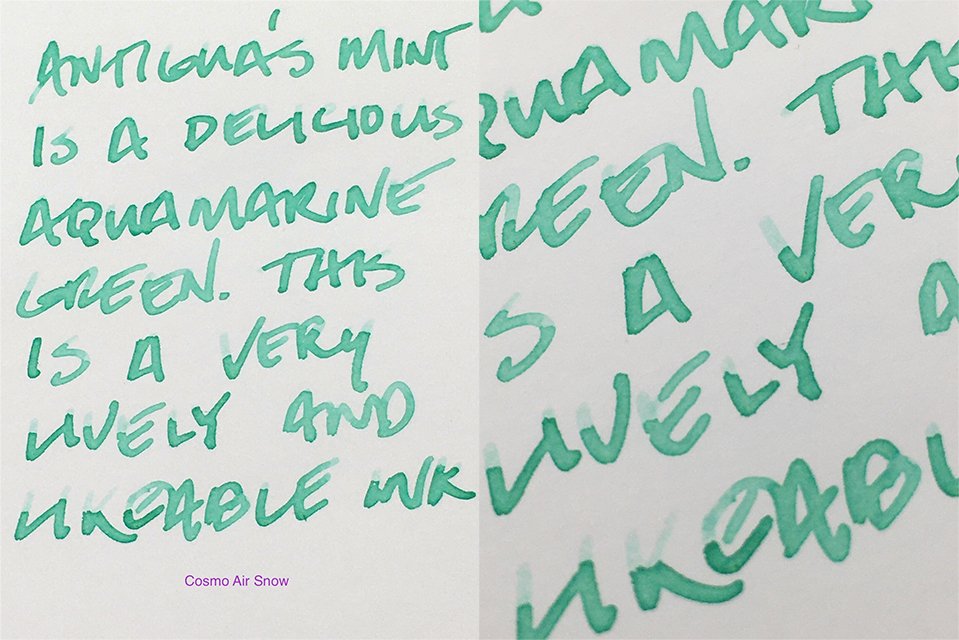 ANTIGUA'S MINT
IS A DELICIOUS
AQUAMARINE
GREEN. THIS
IS A VERY
LIVELY AND
LIKEABLE INK
Cosmo Air Snow
QUAMAR
THIS
REEN.
S A VERY
LIVELY A
LIKEABL